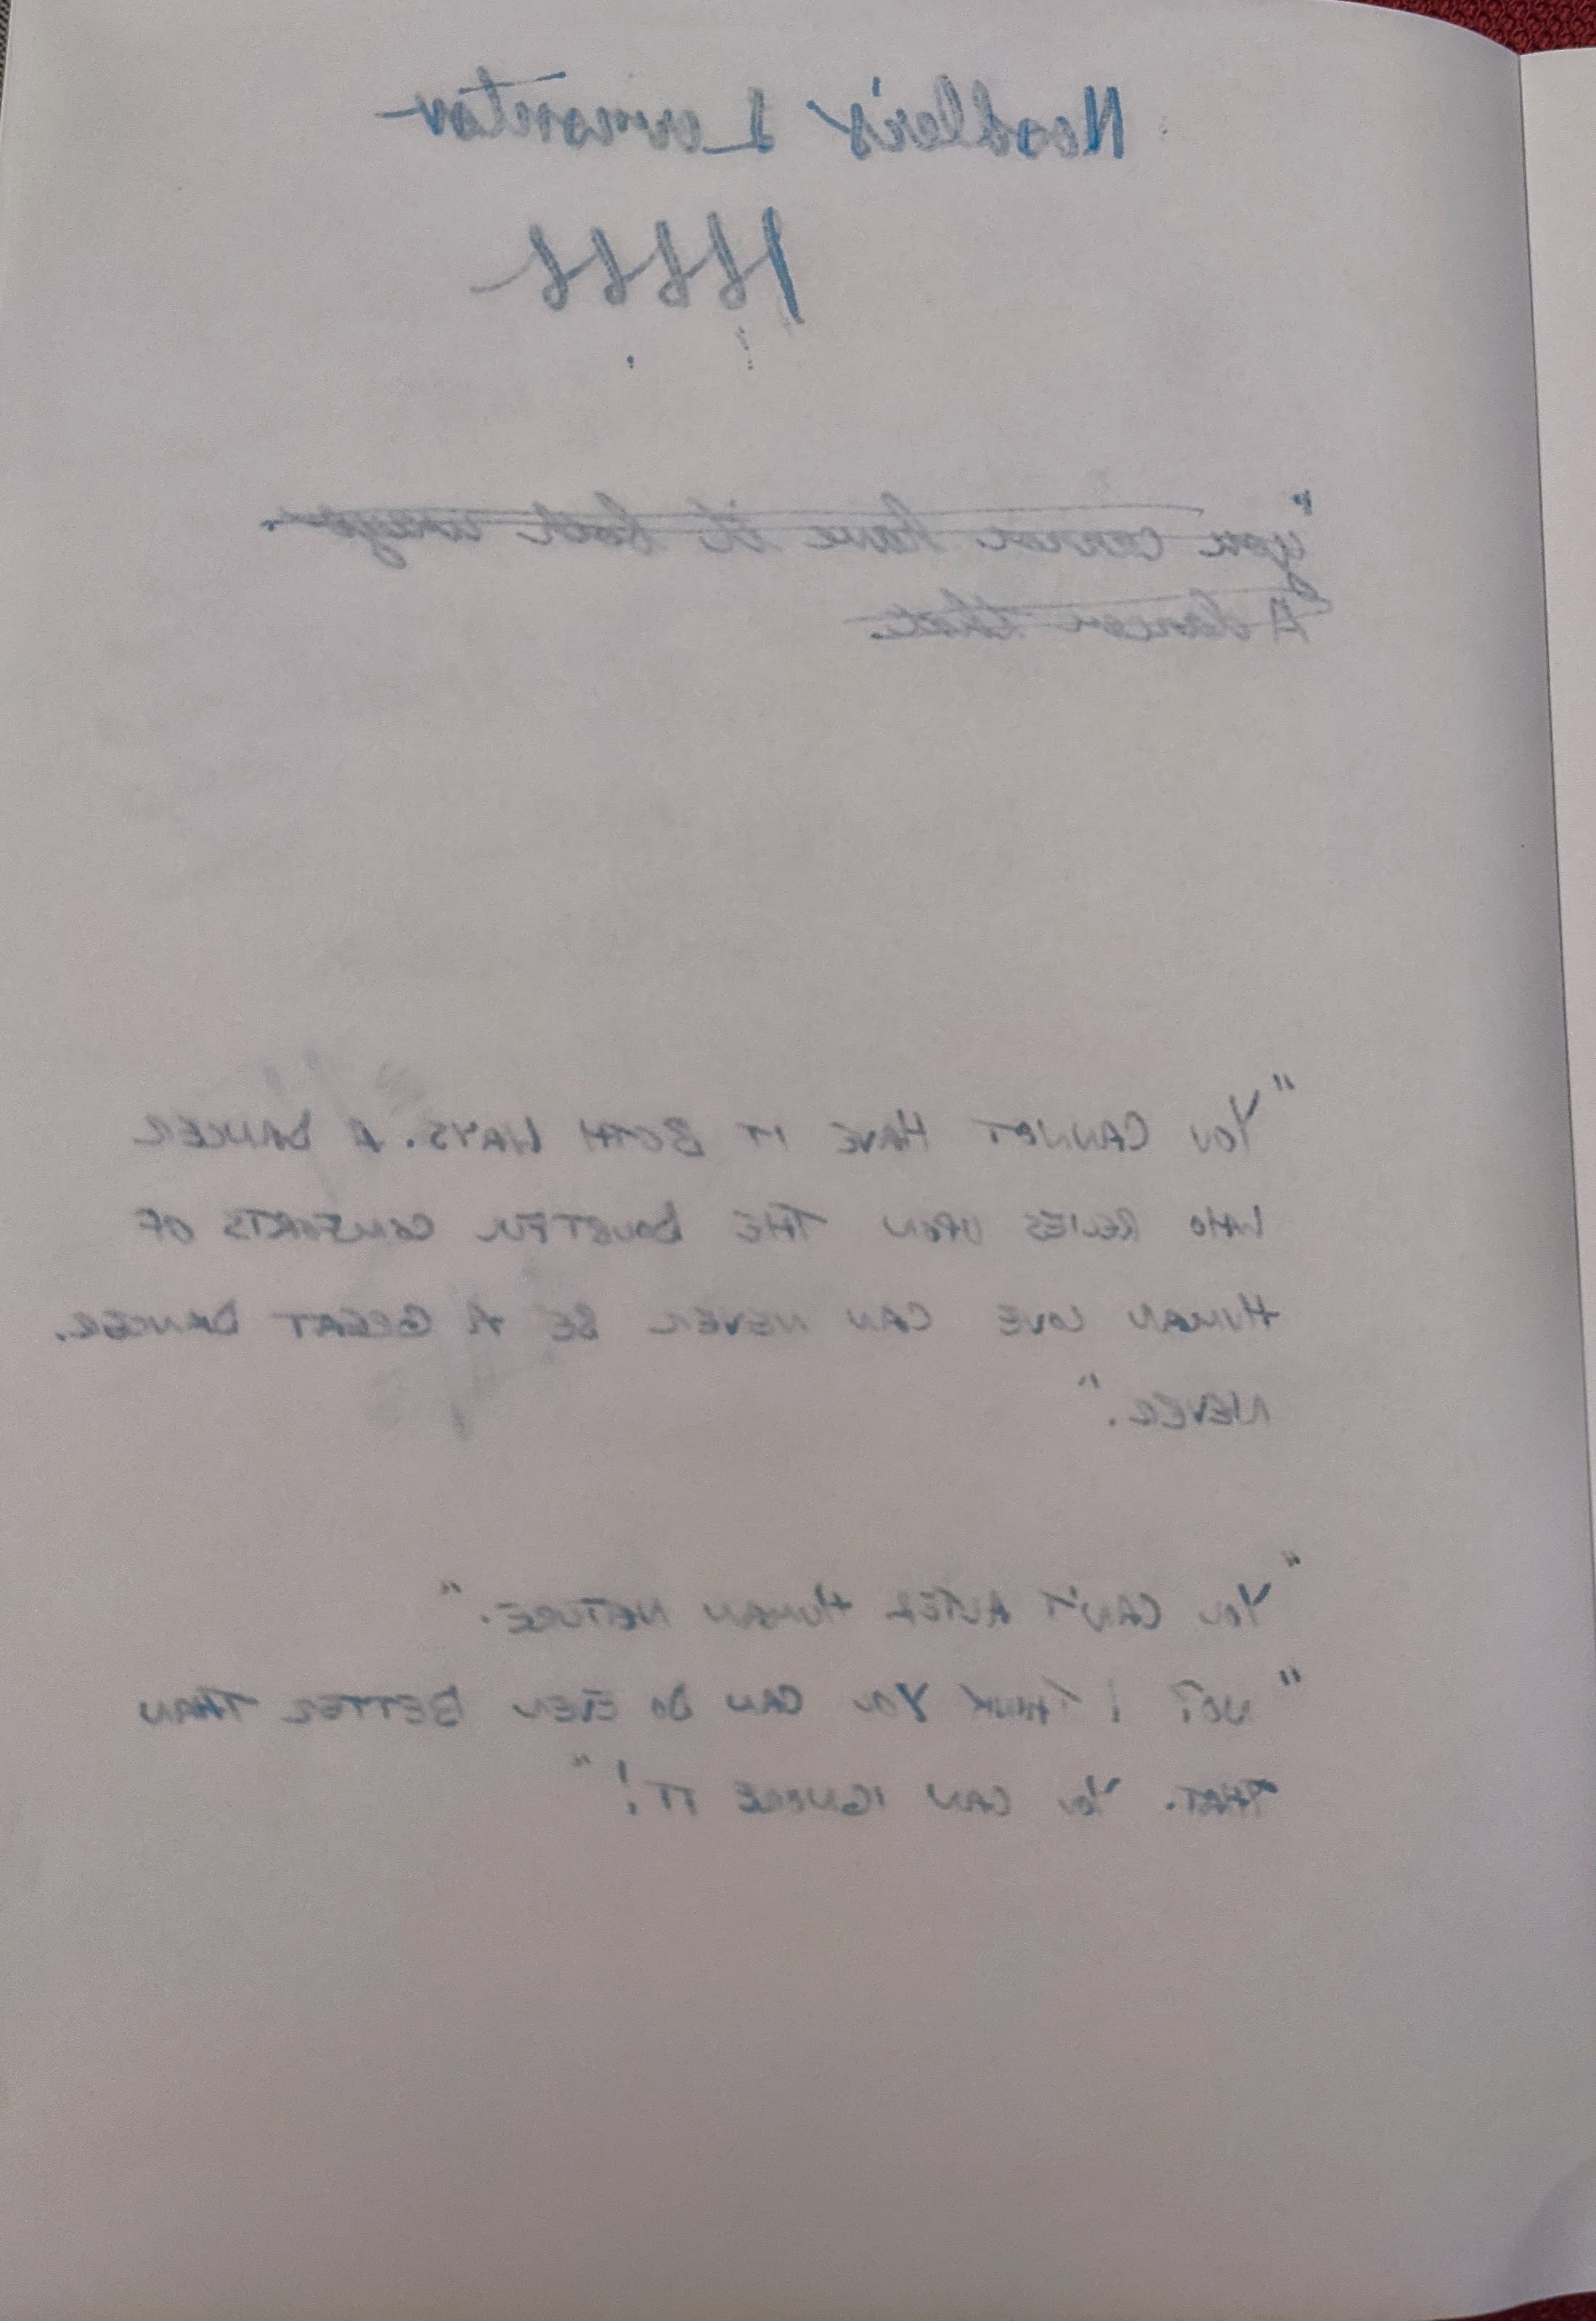 Noodler's Lermontov
"you cannot have it both ways.
A dancer that
"YOU CANNOT HAVE IT BOTH WAYS. A DANCER
WHO RELIES UPON THE DOUBTFUL COMFORTS OF
HUMAN LOVE CAN NEVER BE A GREAT DANCER.
NEVER."
"YOU CAN'T ALTER HUMAN NATURE."
"NO? I THINK YOU CAN DO EVEN BETTER THAN
THAT. YOU CAN IGNORE IT!"